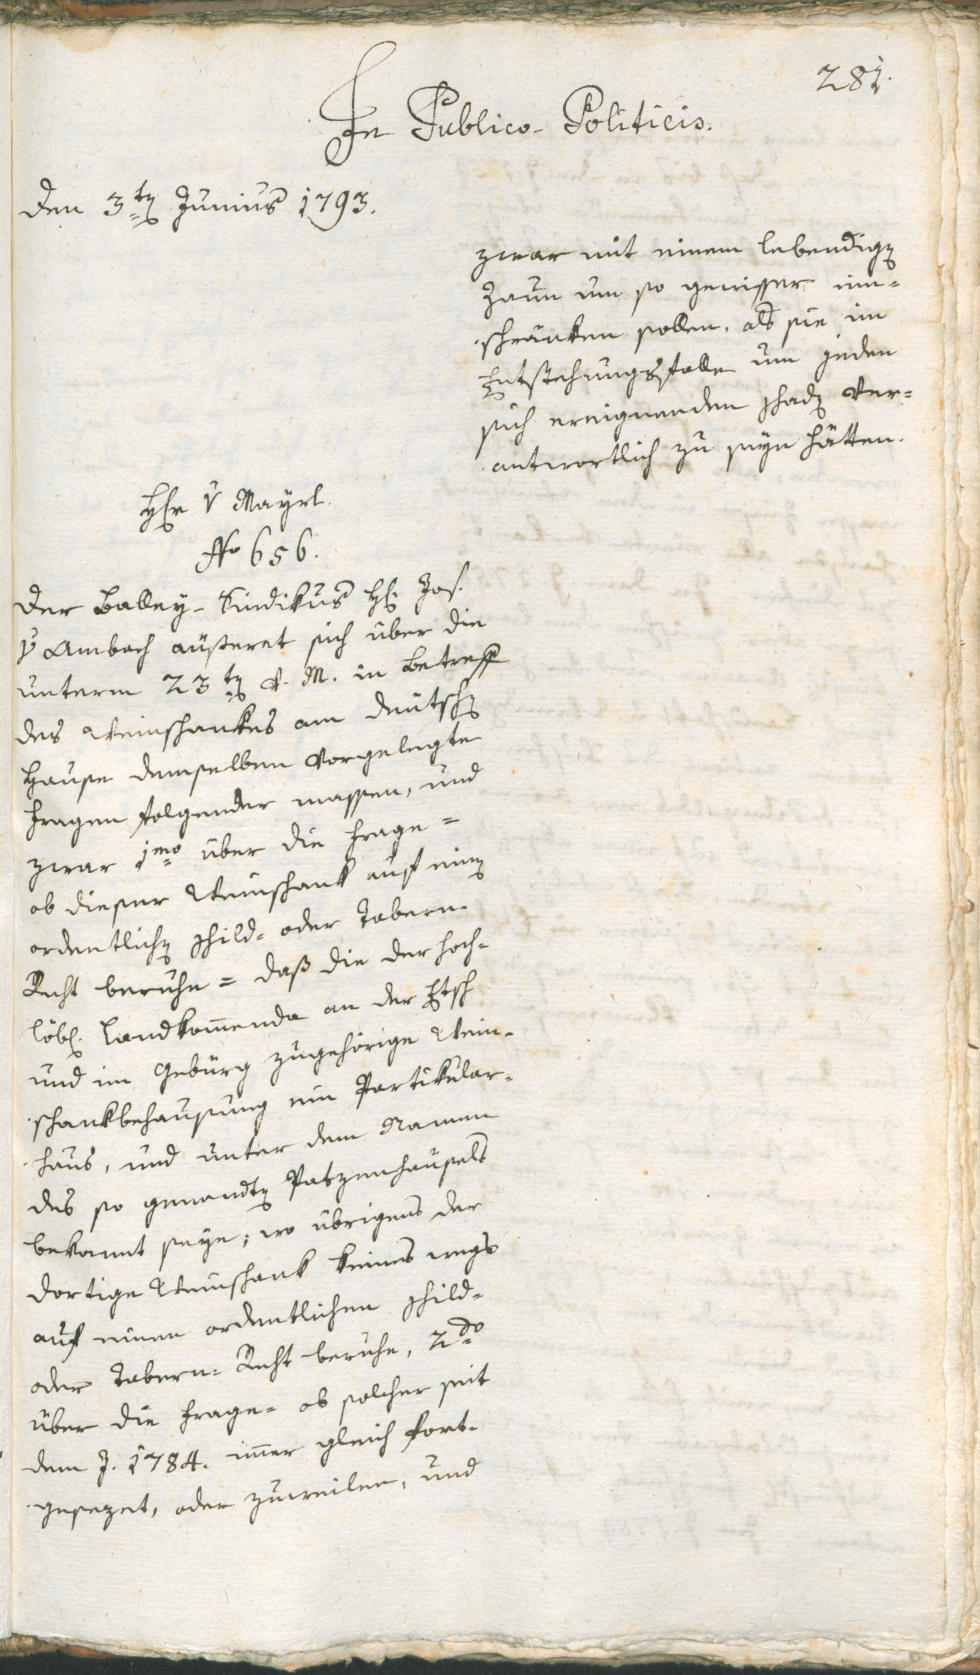 281.
In Publico-Politicis.
Den 3ten Junius 1793.
zwar mit einem lebendigen
Zaun um so gewisser ein-
schränken sollen, als sie im
Entstehungsfalle um jeden
sich ereignenden schaden ver-
antwortlich zu seyn hätten.
Hr v Mayrl.
No 656.
Der Balley-Sindikus H. Jos.
v Ambach äußeret sich über die
unterm 23ten v. M. in Betreff
des Weinschankes am deutschen
Hause demselben vorgelegte
Fragen folgender massen, und
zwar 1mo über die Frage =
ob dieser Weinschank auf einen
ordentlichen schild- oder Tabern-
Recht beruhe = daß die der hoch-
löbl. Landkommenda an der Etsch
und im Gebürg zugehörige Wein-
schankbehausung ein Partikular-
haus, und unter dem Namen
des so genandten Patzenhäusels
bekannt seye; wo übrigens der
dortige Weinschank keines wegs
auf einen ordentlichen schild-
oder Tabern-Recht beruhe, 2do
über die Frage = ob solcher seit
dem J. 1784. immer gleich fort-
gesezet, oder zuweilen, und